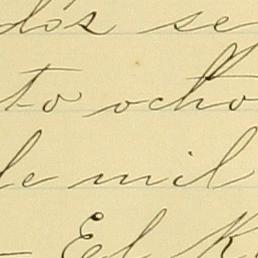 dós se
to ocho
de mil
- El R